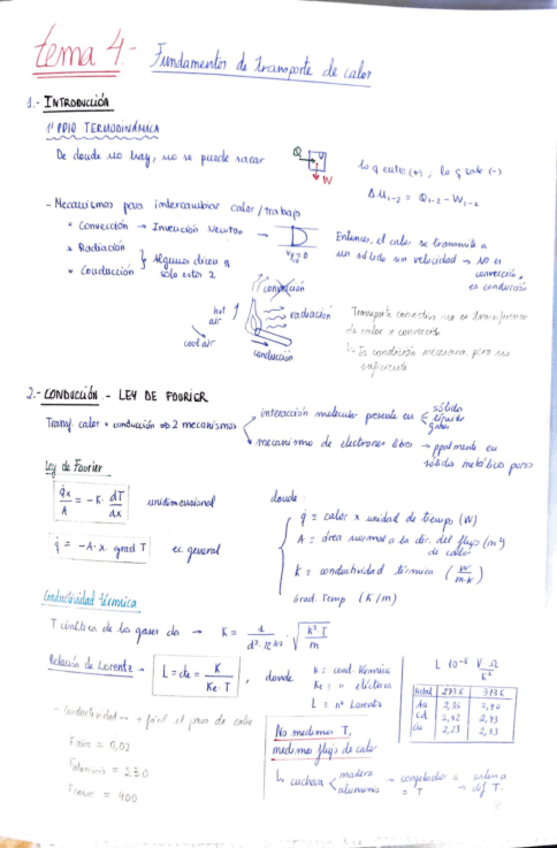 tema 4.- Fundamentos de transporte de calor
1.- INTRODUCCIÓN
1er PPIO TERMODINÁMICA
De donde no hay, no se puede sacar
Q
W
lo q entra (+), lo q sale (-)
ΔU1-2 = Q1-2 - W1-2
- Mecanismos para intercambiar calor/trabajo
* Convección → Invención Newton →
* Radiación
* Conducción
Algunos dicen q
solo estos 2
Entonces, el calor se transmite a
un sólido sin velocidad → NO es
convección,
es conducción
convección
hot
air
radiación
cool air
conducción
Transporte convectivo no es transferencia
de calor x convección
↳ Es condición necesaria, pero no
suficiente
2.- CONDUCCIÓN.- LEY DE FOURIER
Transf. calor x conducción ⇒ 2 mecanismos
interacción molecular presente en
sólido
líquido
gases
mecanismo de electrones libres → ppalmente en
sólidos metálicos puros
Ley de Fourier
q̇x/A = -K · dT/dx unidimensional
q̇ = -A·x. grad T ec general
donde:
q̇ = calor x unidad de tiempo (W)
A = área normal a la dir. del flujo (m²)
de calor
K = conductividad térmica (W/m·K)
Grad. Temp (K/m)
Conductividad térmica
T cinética de los gases da → K = 1/d²·π^3/2 · √(K³·T/m)
Relación de Lorentz → L = cte = K/Ke·T , donde
K = cond. térmica
Ke = " eléctrica
L = nº Lorentz
L·10⁻⁸ V·Ω/K²
Metal 273K 373K
Au 2,35 2,40
Cd 2,42 2,43
Cu 2,23 2,33
- Conductividad → + fácil el paso de calor
Kaire = 0,02
Kaluminio = 230
Kcobre = 400
No medimos T,
medimos flujo de calor
↳ cuchara
madera
aluminio
→ congelador a
= T
→ dif T.